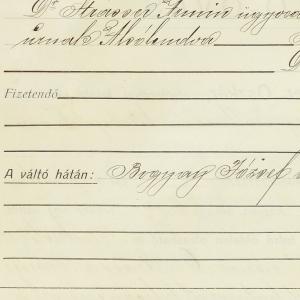 Dr Strasser Ármin ügyvéd
úrnak Alsólendva
Fizetendő
A váltó hátán: Bogyay József